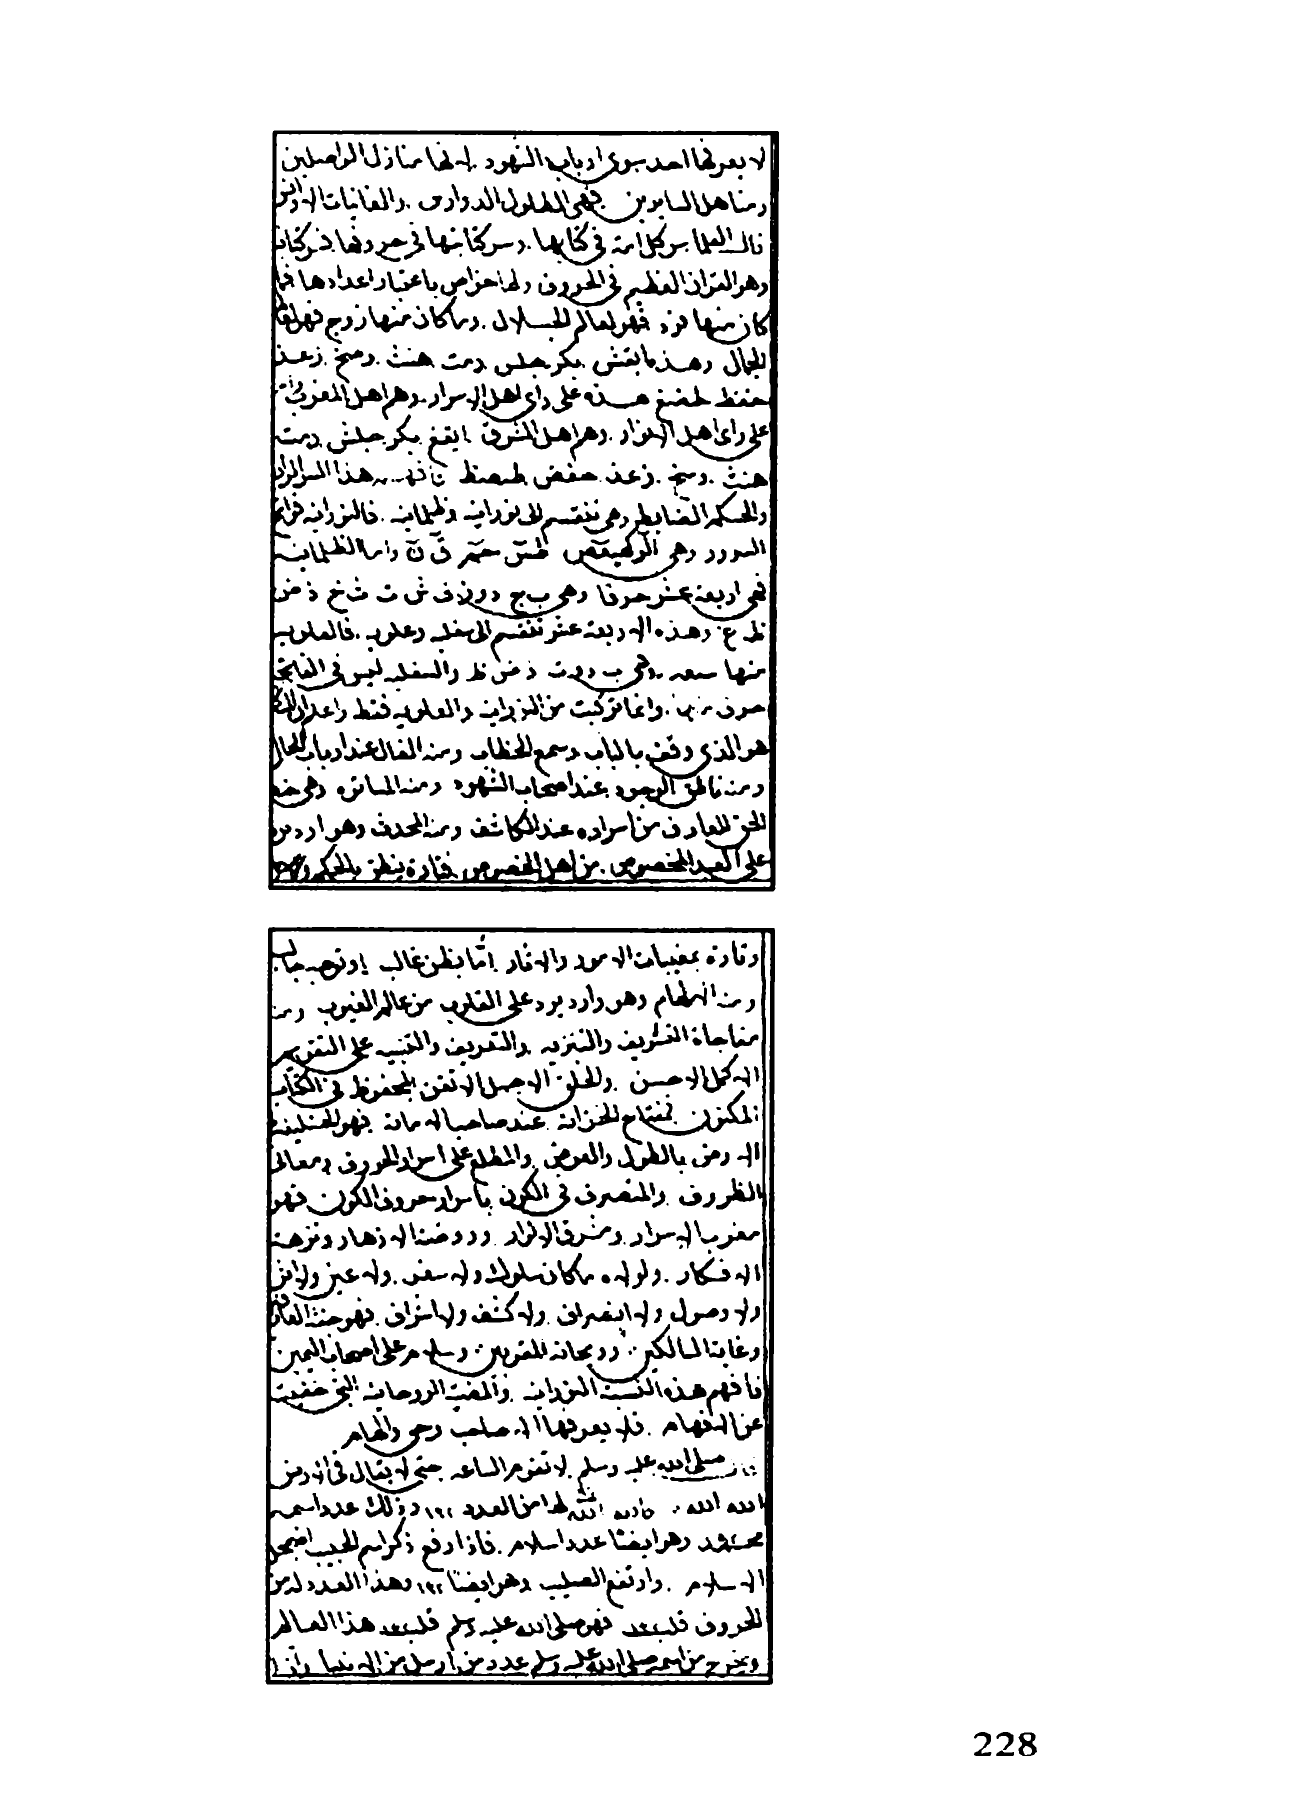 لا يعرفها احد سوى ارباب الشهود. اذ لها منازل الواصلين
ومناهل السايرين فهى الطلول الدوارس. والفانيات الاوانس
قالت العلما سر كل امة فى كتابها. وسر كتابتها فى حروفها فسر كتابنا
وهو القران العظيم فى الحروف ولها خواص باعتبار اعدادها فما
كان منها فرد فهو لعالم الجلال. وما كان منها زوج فهو لعالم
الجمال وهذه ايقش بكر جلس دمت هنث. وصخ زعذ
حفظ طضغ هذه على راى اهل الاسرار. وهم اهل المغرب واما
على راى اهل الانوار. وهم اهل الشرق ايقغ بكر جلش دمت
هنث. وسخ. زعذ حفض طصظ فافهم هذا السر الوارد
والحكم الضابط وهى تنقسم الى نورانيه وظلمانيه. فالنورانيه فواتح
السور وهى الركهيعص طس حم ق ن واما الظلمانيه
فهى اربعة عشر حرفا وهى ب ج د و ز ف ش ت ث خ ذ ض
ظ غ. وهذه الاربعة عشر تنقسم الى سفليه وعلويه. فالعلويه
منها سبعه. وهى ب د و ت ذ ض ظ والسفليه ليس فى الفاتحة
حرف منها. وانما تركبت من النورانيه والعلويه فقط واعلم ان
هو الذى وقف بالباب وسمع الخطاب ومنه الفال عند ارباب الحال
ومنه ناطق الوجود عند اصحاب الشهود ومنه المسامره وهى
الحق للعارف من اسراره عند المكاشف ومنه المحدث وهو ارد يرد
على العبد المخصوص. من اهل الخصوص. فتارة ينطق بالحكم
وتارة بمغيبات الامور والاثار اما بظن غالب او توجه جالب
ومنه الالهام وهو وارد يرد على القلوب من عالم الغيوب ومنه
مفاجاة التشريف والتنزيه والتعريف والتنبيه على التقويم
الاكمل الاحسن. والخلق الاجمل الاتقن المحفوظ فى الكتاب
المكنون لمفتاح الخزانة عند صاحب الامانة فهو الخليفة
الارض بالطول والعرض والمطلع على اسرار الحروف ومعانى
الظروف والمتصرف فى الكون باسرار حروف الكون فهو
مغرب الاسرار. ومشرق الانوار وروضة الازهار ونزهة
الافكار. ولولاه ما كان سلوك ولا سفر. ولا عين ولا اثر
ولا وصول ولا انصراف. ولا كشف ولا اشراق. فهو جنة العارفين
وغاية السالكين. وريحانة للمقربين. وسلام على اصحاب اليمين
فافهم هذه النسبة النورانيه والمضية الروحانيه التى خفيت
عن الافهام. فلا يعرفها الا صاحب وحى والهام
قال صلى الله عليه وسلم لا تقوم الساعه حتى لا يقال فى الارض
الله الله. لها من العدد ١٩٢ وذلك عدد اسمه
محمد وهو ايضا عدد اسلام. فاذا رفع ذكر اسم الحبيب اضمحل
الاسلام. وارتفع الصليب وهو ايضا ١٩٢ وهذا العدد له من
الحروف قلب فهو صلى الله عليه وسلم قلب هذا العالم
ويخرج من اسمه صلى الله عليه وسلم عدد من ارسل من الانبيا
228